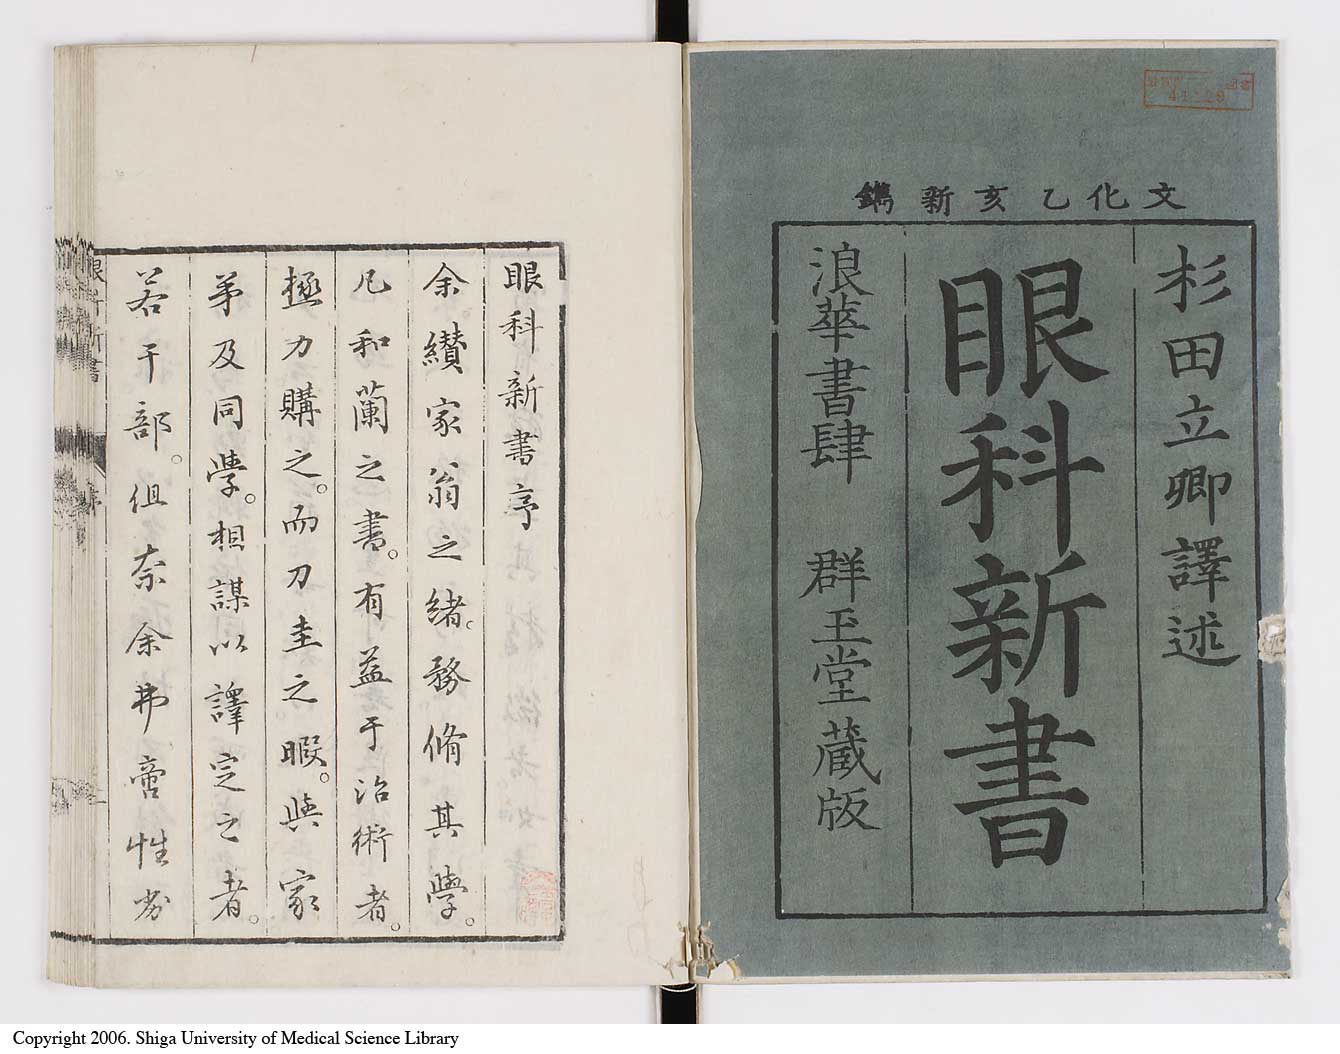 文化乙亥新鐫
杉田立卿譯述
眼科新書
浪華書肆 群玉堂蔵版
眼科新書序
余纘家翁之緒。務脩其學。
凡和蘭之書。有益于治術者。
極力購之。而刀圭之暇。與家
弟及同學。相謀以譯定之者。
若干部。但奈余弗啻性劣
眼科新書
序
Copyright 2006. Shiga University of Medical Science Library